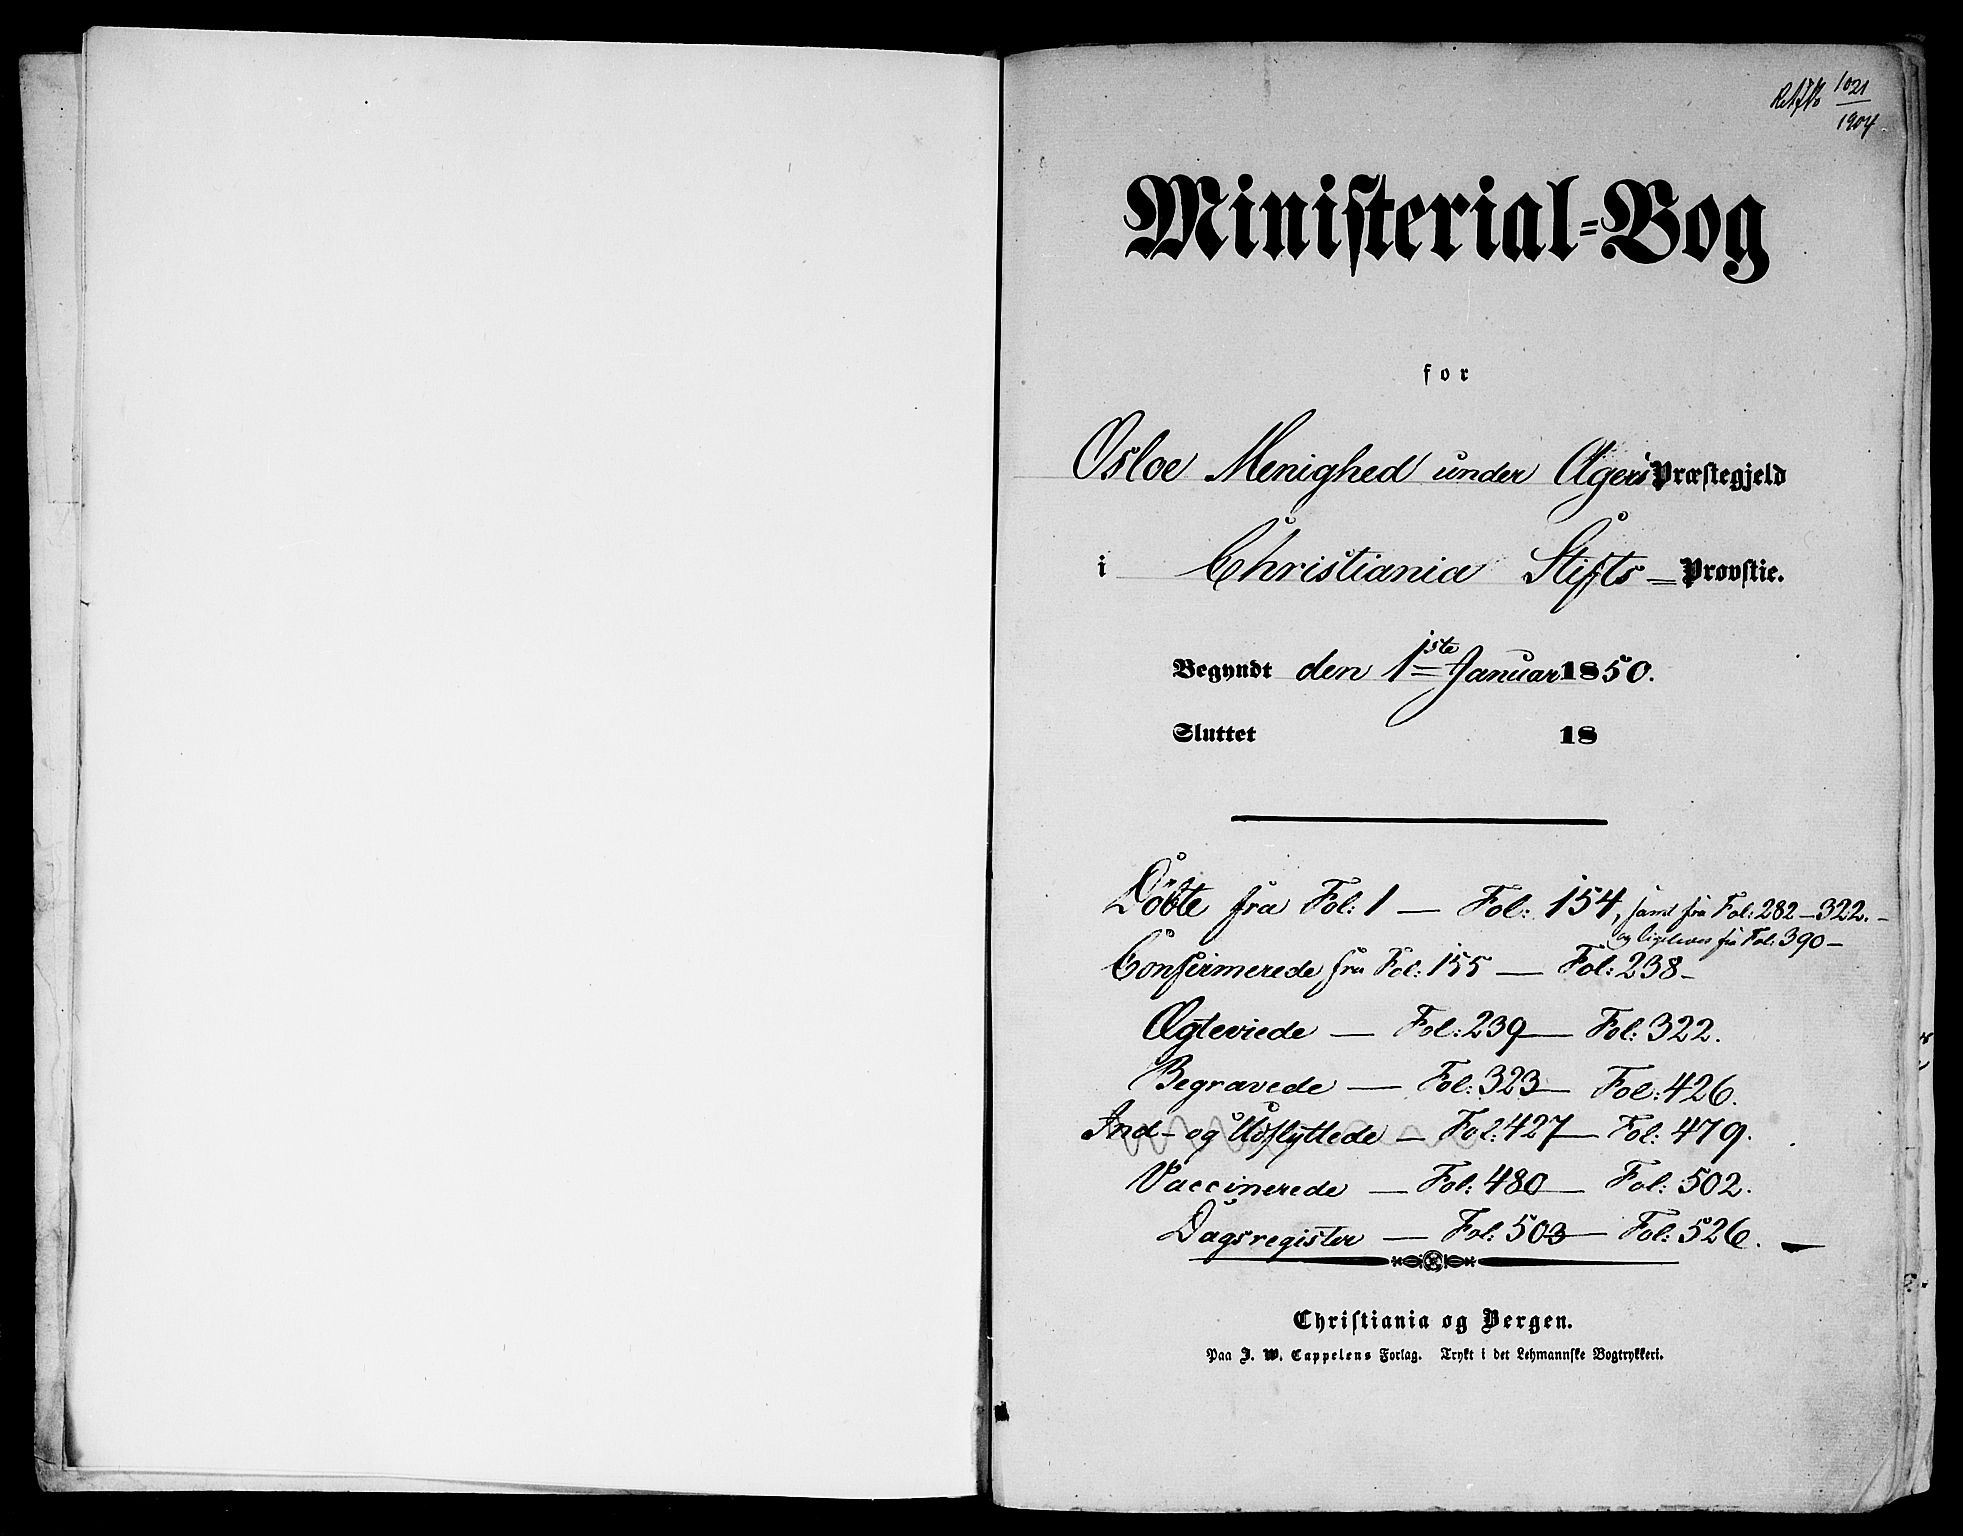 1021
1904
Ministerial=Bog
for
Osloe Menighed under Agers Præstegjeld
i Christiania Stifts - Provstie.
Begyndt den 1ste Januar 1850.
Sluttet 18
Döbte fra Fol: 1 — Fol: 154, samt fra Fol: 282 - 322. -
og ligeledes fra Fol: 390 -
Confirmerede fra Fol: 155 — Fol: 238 -
Ægteviede — Fol: 239 — Fol: 322.
Begravede — Fol: 323 — Fol: 426.
Ind- og Udflyttede — Fol: 427 — Fol: 479.
Vaccinerede — Fol: 480 — Fol: 502.
Dagsregister — Fol: 503 — Fol: 526.
Christiania og Bergen.
Paa J. W. Cappelens Forlag. Trykt i det Lehmannske Bogtrykkeri.